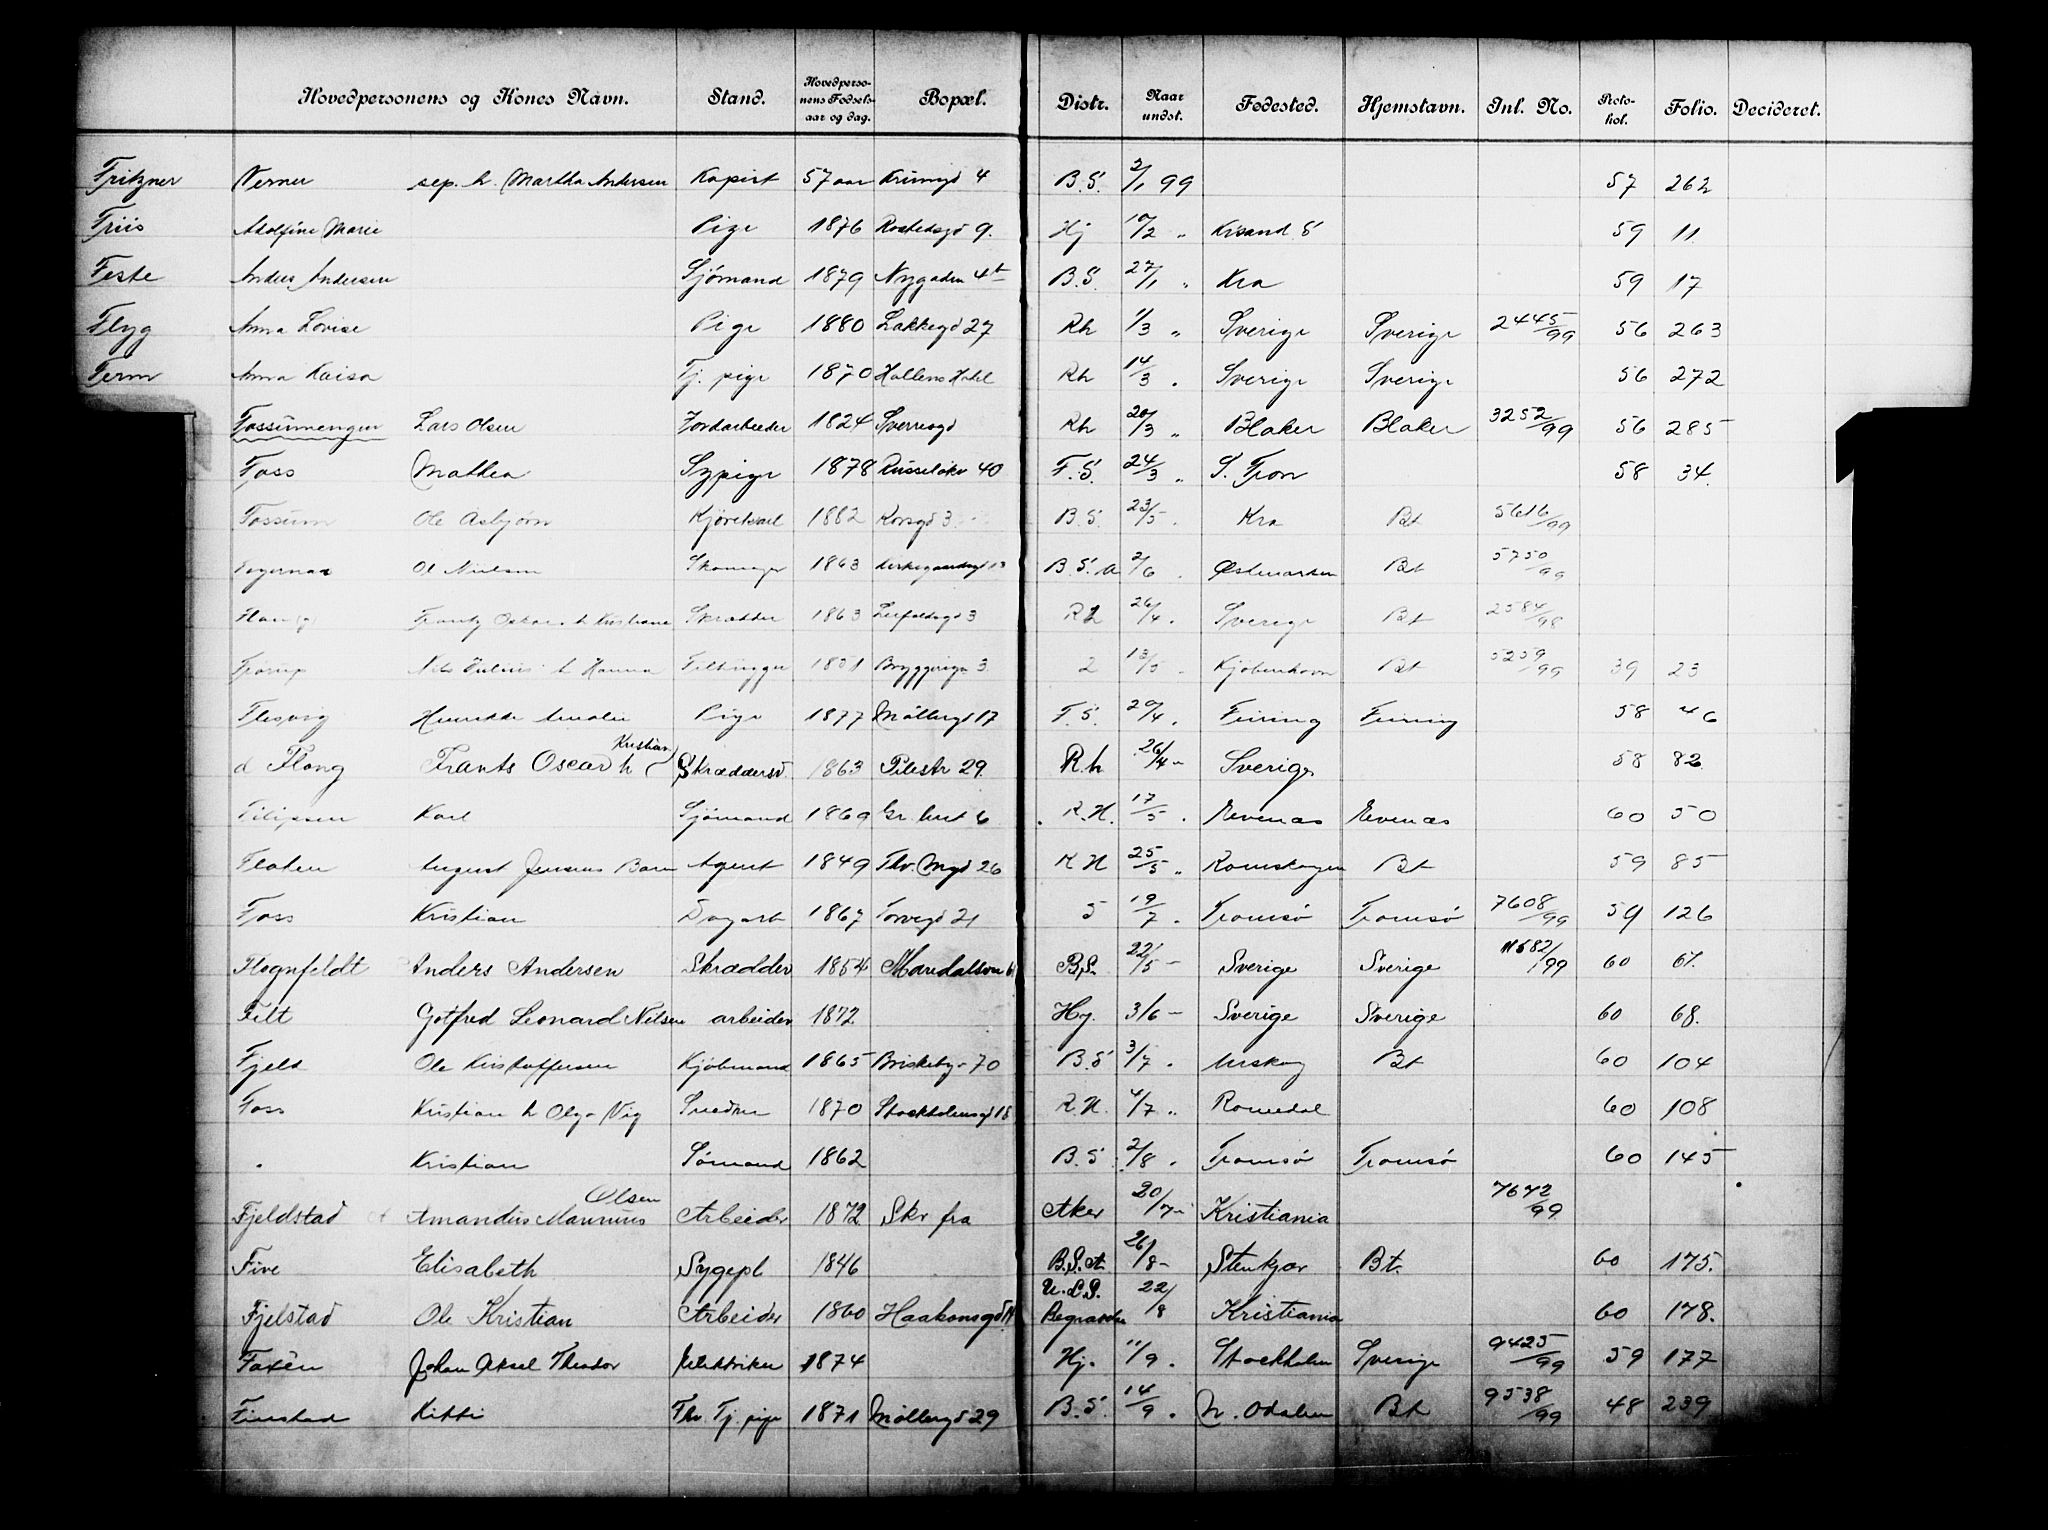 Hovedpersonens og Kones Navn. Stand. Hovedperso-nens Fødsels-aar og dag. Bopæl. Distr. Naar undst. Fødested. Hjemstavn. Inl. No. Proto-kol. Folio. Decideret.
Fritzner Verner sep. h. Martha Andersen Kopist 57 aar 4 B.S. 2/1 99 57 262
Friis Adolfine Marie Pige 1876 Rostedsgd 9. Hj 10/2 " Krsand S 59 11
Feste Anders Andersen Sjømand 1879 Nygaden 4b B.S. 27/1 " Kra 59 17
Flyg Anna Lovise Pige 1880 Lakkegd 27 Rh 1/3 " Sverige Sverige 2445/99 56 263
Ferm Anna Kaisa Tj. pige 1870 Hallens Hotel Rh 14/3 " Sverige Sverige 56 272
Fossumengen Lars Olsen Jordarbeider 1824 Sverresgd Rh 20/3 " Blaker Blaker 3252/99 56 285
Foss Mathea Sypige 1878 Russeløkv 40 F.S. 24/3 " S. Fron 58 34.
Fossum Ole Asbjørn 1882 Korsgd 3 B.S. 23/5 " Kra Bt 5616/99
Ol Nielsen Skomager 1863 B.S.A 2/6 " Østmarken Bt 5750/99
Frantz Oskar h Kristiane Skrædder 1863 Leifaldsgd 3 Rh 26/4 " Sverige Bt 2584/98
Nils Julius h Hanna Filthugger 1851 3 2 13/5 " Kjøbenhavn Bt 5259/99 39 23
Flesvig Henrikke Amalie Pige 1877 Møllergd 17 F.S. 20/4 " Feiring Feiring 58 46
d Flong Frants Oscar h Kristian Skræddersv. 1863 Pilestr 29. R.h 26/4 - Sverige 58 82
Filipsen Karl Sjømand 1869 6 R.H. 17/5 " Evenæs Evenæs 60 50
Floten August Jensens Barn Agent 1849 Thv. Mgd 26 R H 25/5 " Romskogen Bt 59 85
Foss Kristian Dagarb 1867 Torvegd 21 5 19/7 " Tromsø Tromsø 7608/99 59 126
Flognfeldt Anders Andersen Skrædder 1854 Maridalsvn 6 B.S. 22/5 - Sverige Sverige 11682/99 60 67.
Filt Gotfred Leonard Nilsen arbeider 1872 Hj. 3/6 - Sverige Sverige 60 68.
Fjeld Ole Kristoffersen Kjøbmand 1865 Briskeby- 70 B.S 3/7 " Urskog Bt 60 104
Foss Kristian h Olga Vig Snedker 1870 Stockholmsgd 18 R.H. 4/7 " Romedal 60 108
" Kristian Sømand 1862 B.S. 2/8 " Tromsø Tromsø 60 145
Fjeldstad Amandus Maurius Olsen Arbeider 1872 Skr fra Aker 20/7 - Kristiania 7672/99
Five Elisabeth Sygepl 1846 B.S.A 26/8 - Stenkjær Bt. 60 175.
Fjelstad Ole Kristian Arbeider 1860 Haakonsgd 14 U.L.S. Begravelse 22/8 Kristiania 60 178.
Faxén Johan Aksel Theodor Elektriker 1874 Hj. 11/9 " Stockholm Sverige 9425/99 59 177
Finstad Kitti Fhv. Tj. pige 1871 Møllergd 29 B.S. 14/9 " N. Odalen Bt 9538/99 48 239